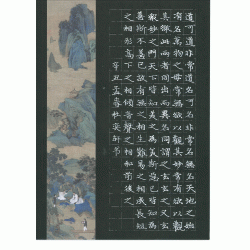 道可道非常道名可名非常名無名天地之始
有名萬物之母常無欲以觀其妙常有欲以觀
其徼此兩者同出而異名同謂之玄玄之又玄
衆妙之門天下皆知美之為美斯惡已皆知
善斯不善已故有無之相生難易之相成長短
之相形高下之相盈音聲之相和前後之
辛丑孟春